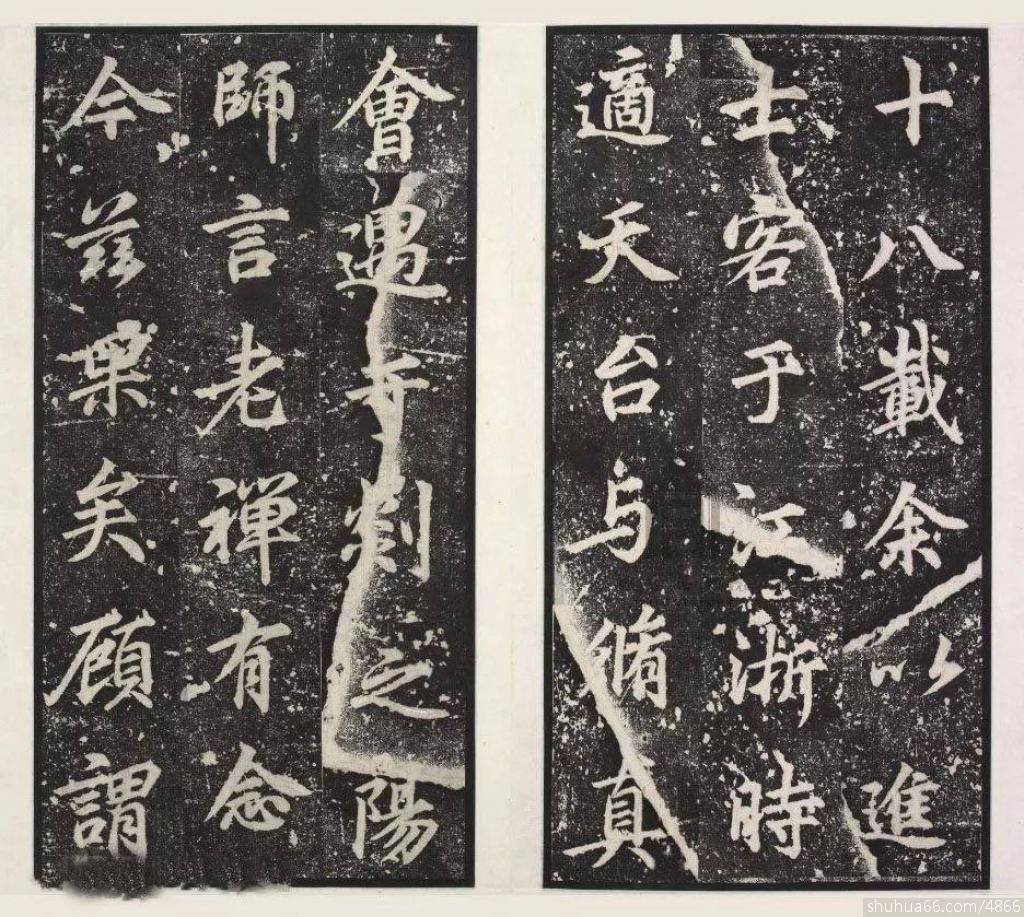 十八載余以進
士客于江浙時
適天台与脩真
會遇于剡之陽
師言老禪有念
今茲果矣顧謂
shuhua66.com/4866